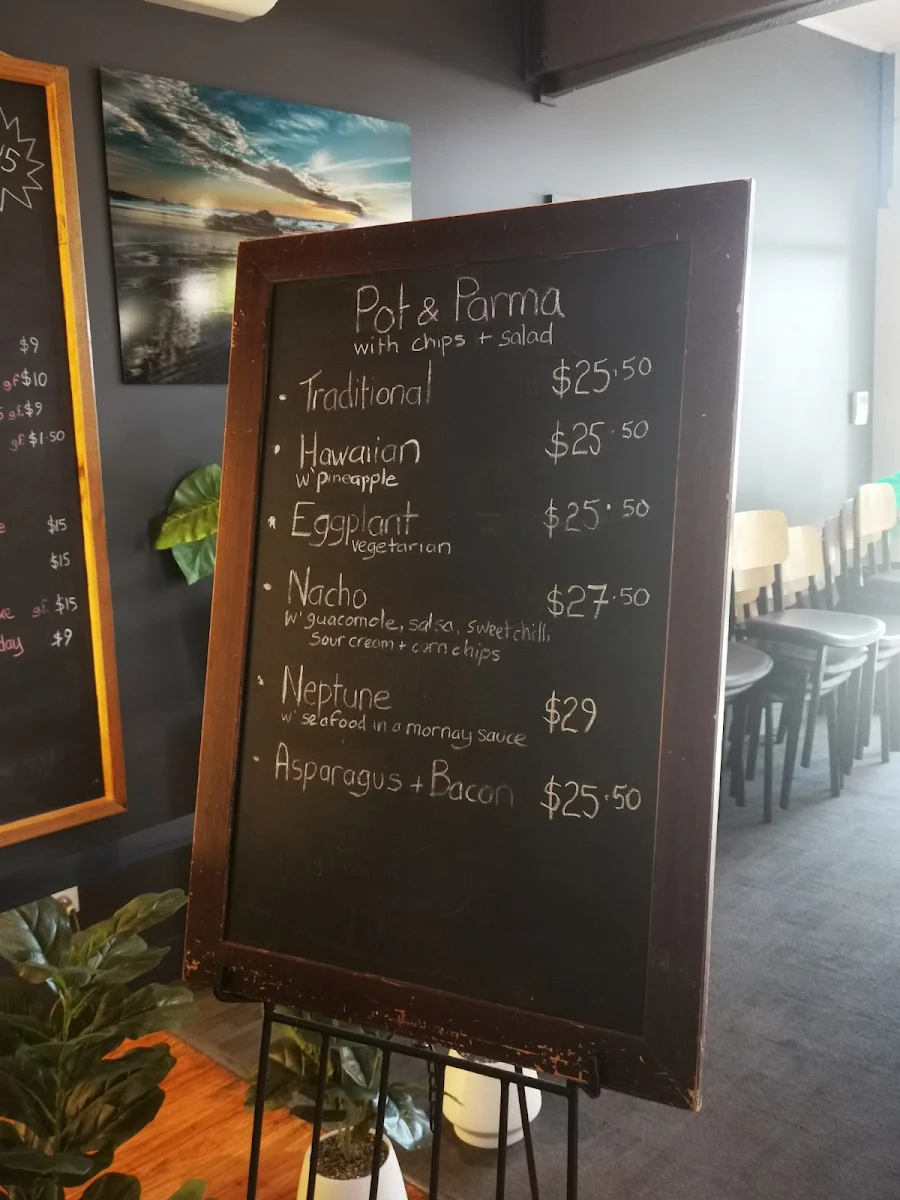 5
$9
gf $10
gf. $9
gf. $1.50
$15
$15
gf. $15
day $9
Pot & Parma
with chips + salad
• Traditional $25.50
• Hawaiian $25.50
w' pineapple
• Eggplant $25.50
vegetarian
• Nacho $27.50
w' guacamole, salsa, sweet chilli
sour cream + corn chips
• Neptune $29
w' seafood in a mornay sauce
• Asparagus + Bacon $25.50